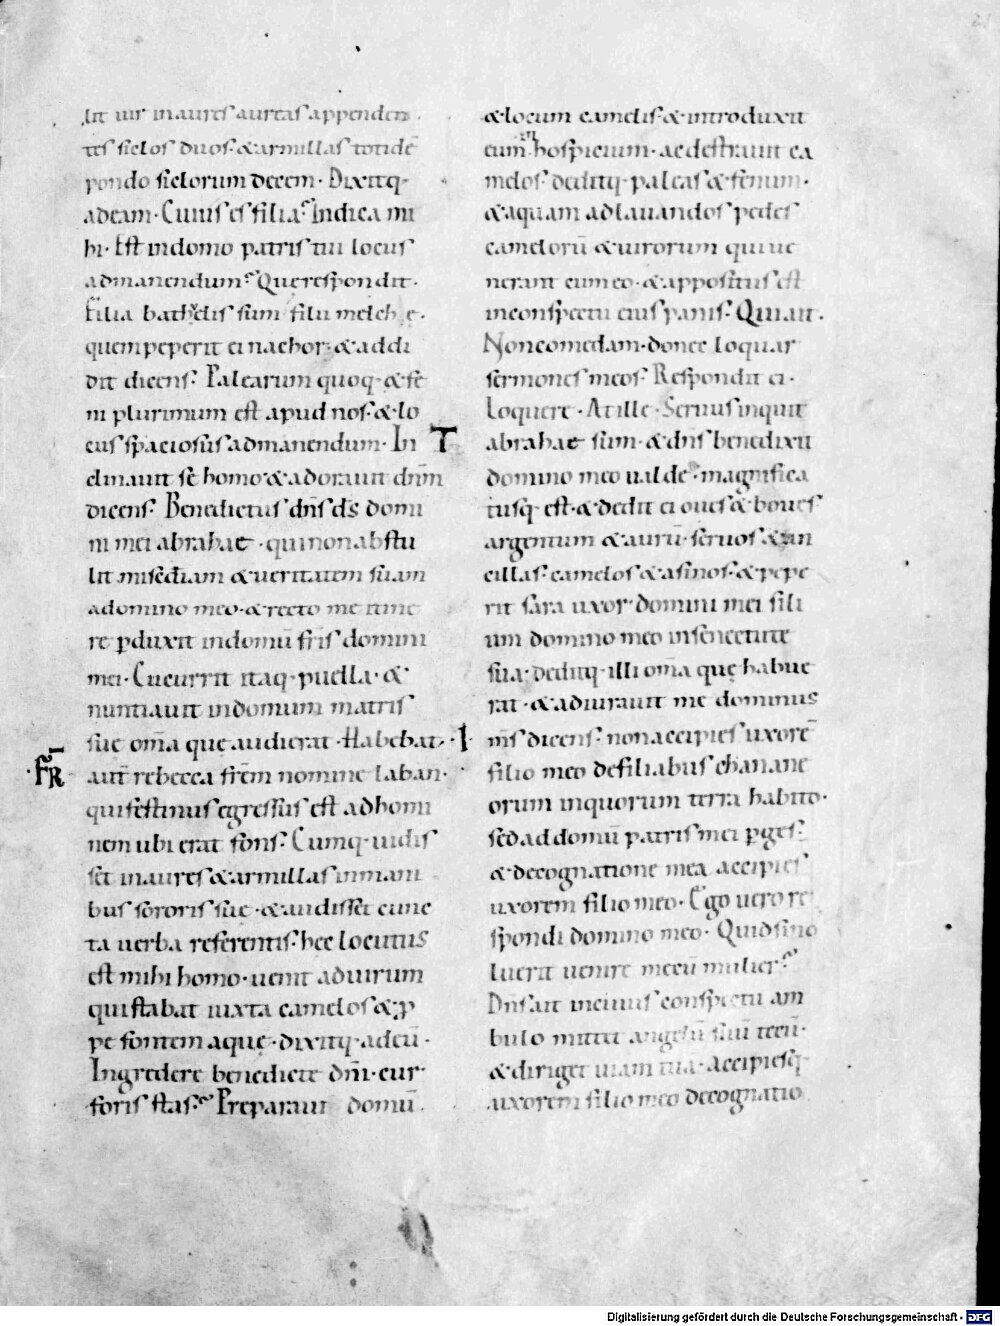 lit uir inaures aureas appenden
tes siclos duos· & armillas totidē
pondo siclorum decem· Dixitq·
ad eam· Cuius es filia? Indica mi
hi· Est in domo patris tui locus
ad manendum? Quę respondit·
Filia bathuelis sum filii melchę·
quem peperit ei nachor· & addi
dit dicens· Palearum quoq· & fę
ni plurimum est apud nos· & lo
cus spaciosus ad manendum· In
clinauit se homo· & adorauit dnm̄
dicens· Benedictus dn̄s ds̄ domi
ni mei abrahae· qui non abstu
lit miscd̄iam & ueritatem suam
a domino meo· & recto me itine
re pduxit in domū fr̄is domini
mei· Cucurrit itaq· puella· &
nuntiauit in domum matris
suę om̄a que audierat· Habebat·
FR̄
aut̄ rebecca fr̄em nomine laban·
qui festinus egressus est ad homi
nem ubi erat fons· Cumq· uidis
set inaures & armillas in mani
bus sororis suę· & audisset cunc
ta uerba referentis· hęc locutus
est mihi homo· uenit ad uirum
qui stabat iuxta camelos & p
pe fontem aquę· dixitq· ad eū·
Ingredere benedicte dn̄i· cur
foris stas? Preparaui domū
& locum camelis· & introduxit
eum in hospicium· ac destrauit ca
melos· deditq· paleas & fenum·
& aquam ad lauandos pedes
camelorū & uirorum qui ue
nerant cum eo· & appositus est
in conspectu eius panis· Qui ait·
Non comedam· donec loquar
sermones meos· Respondit ei·
Loquere· At ille· Seruus inquit
abrahae sum· & dn̄s benedixit
domino meo ualde· magnifica
tusq· est· & dedit ei oues & boues
argentum & aurū· seruos & an
cillas· camelos & asinos· & pepe
rit sara uxor domini mei fili
um domino meo in senectute
sua· deditq· illi om̄a quę habue
rat· & adiurauit me dominus
m̄s dicens· non accipies uxorē
filio meo de filiabus chanane
orum in quorum terra habito·
sed ad domū patris mei pges·
& de cognatione mea accipies
uxorem filio meo· Ego uero re
spondi domino meo· Quid si no
luerit uenire mecū mulier?
Dn̄s ait in cuius conspectu am
bulo mittet angelū suū tecū·
& diriget uiam tuā· accipiesq·
uxorem filio meo de cognatio
Digitalisierung gefördert durch die Deutsche Forschungsgemeinschaft - DFG